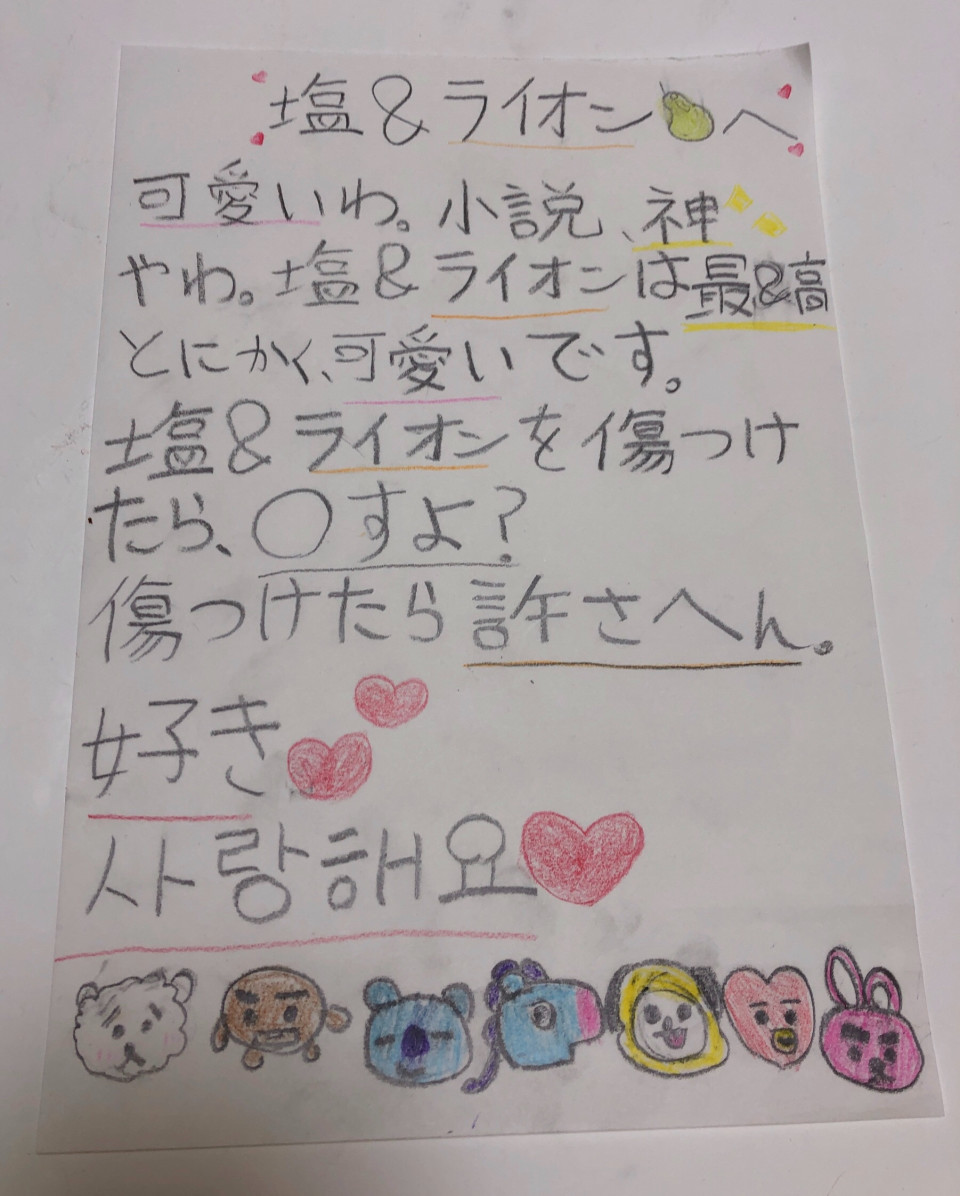 塩&ライオンへ
可愛いわ。小説、神
やわ。塩&ライオンは最&高
とにかく、可愛いです。
塩&ライオンを傷つけ
たら、〇すよ?
傷つけたら許さへん。
好き
사랑해요